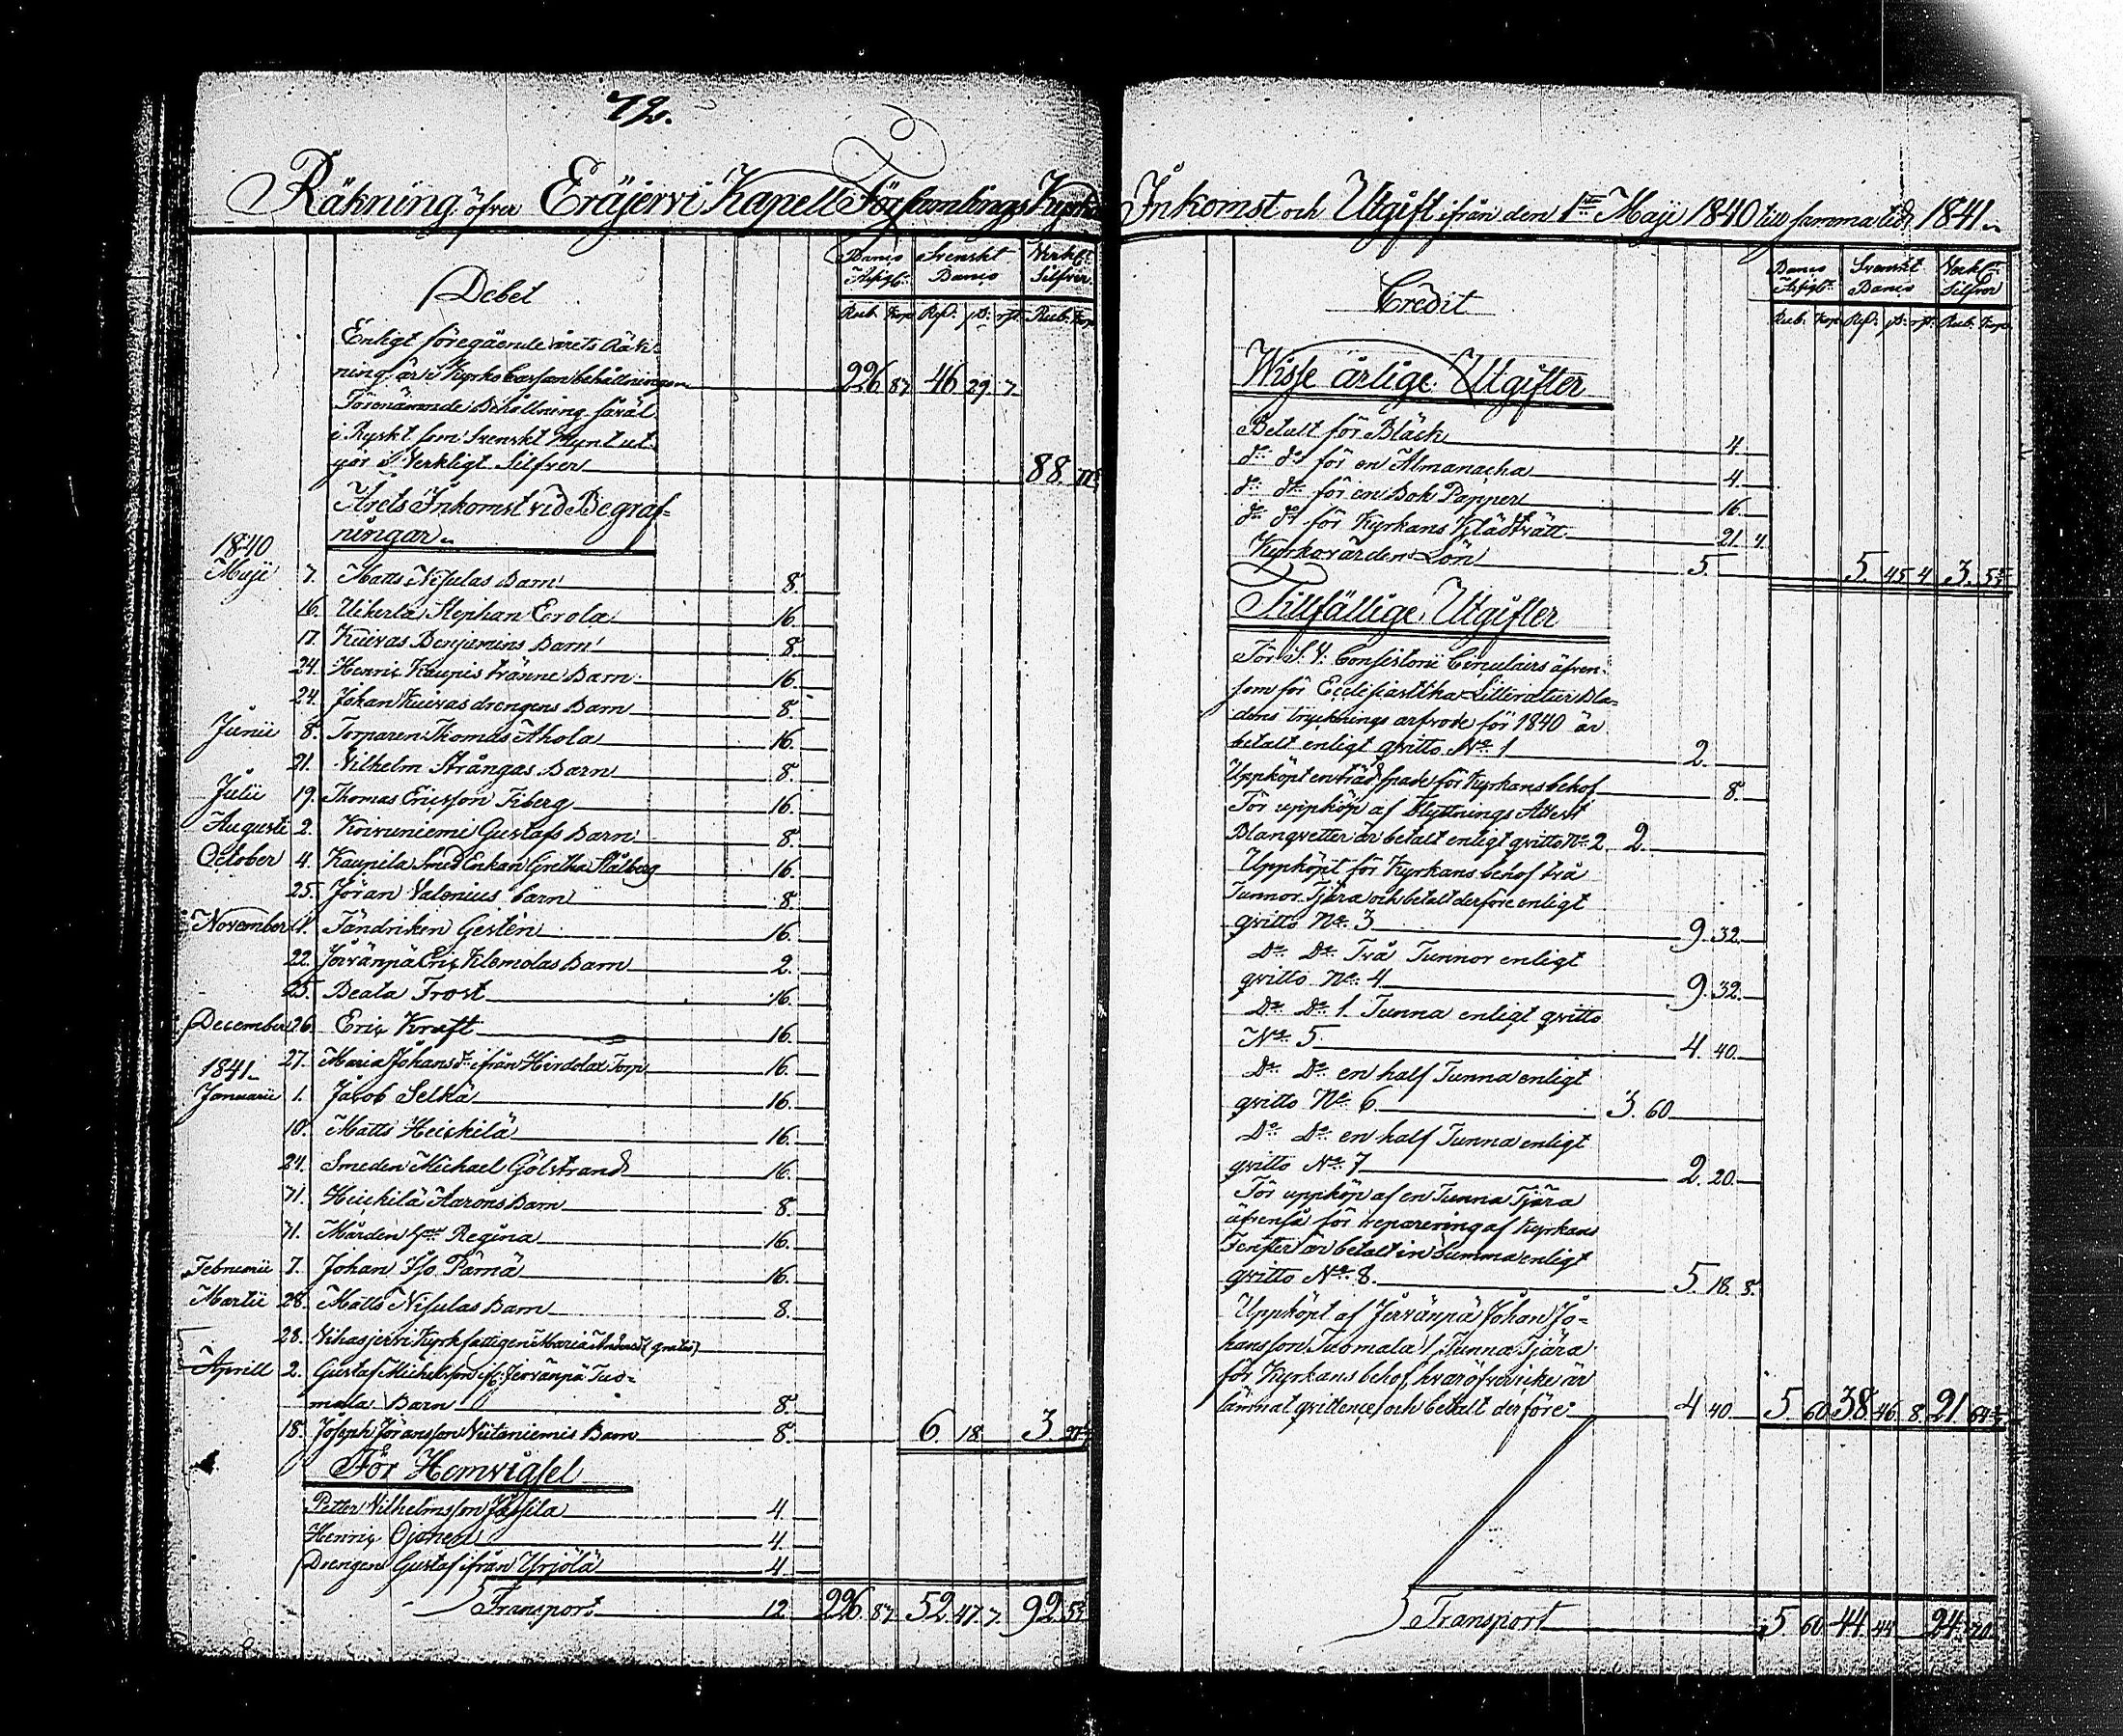 72.
Räkning öfver Eräjervi Kapell Församlings Kyrko
Debet
Banco Assigt: Svenskt Banco Verkl: Silfver
Rub. Kop Rd: s: rst. Rub. Kop
Enligt föregående årets Räk-
ning är i Kyrko Cassan behållningen 226 87 46 29. 7.
Förenämnde Behållning såväl
i Ryskt som Svenskt Mynt ut-
gör i Verkligt Silfver 88.
Årets Inkomst vid Begraf-
ningar
1840
Maji 7. Matts Nisulas Barn 8.
16. Uikerla Stephan Erola 16.
17. Kuivas Benjamins Barn 8.
24. Henric Kaupis tränne Barn 16.
24. Johan Kuivas drengens Barn 8.
Junii 8. Torparen Thomas Ahola 16.
21. Vilhelm Strångas Barn 8.
Julii 19. Thomas Ericsson Fiberg 16.
Augusti 2. Koivuniemi Gustafs Barn 8.
October 4. Kaupila Smed Enkan Gretha Stålberg 16.
25. Jöran Valenius barn 8.
November 1. Fändriken Gestén 16.
22. Jervänpä Eric Klemolas Barn 2.
25. Beata Frost 16.
December 26. Eric Kraft 16.
27. Maria Johansd:r ifrån Hirdolax Torp 16.
1841.
Januarii 1. Jacob Selkä 16.
10. Matts Heickilä 16.
24. Smeden Michael Gölstrand 16.
31. Heickilä Aarons Barn 8.
31. Mårdén Regina 16.
Februarii 7. Johan Iso Pärnä 16.
Martii 28. Matts Nisulas Barn 8.
28. Vihasjervi Kyrkfattigen Maria (gratis)
Aprill 2. Gustaf Michelsson ifr: Jervänpä Tuo-
mala Barn 8.
18. Joseph Göransson Niiteniemis Barn 8. 6. 18. 3.
För Hemvigsel
Petter Vilhelmsson Jussila 4.
Henric Ojanen 4.
Drengen Gustaf ifrån Yrjölä 4.
Transport 12. 226. 87. 52. 47. 7. 92.
Inkomst och Utgift ifrån den 1ste Maji 1840 till samma tid 1841.
Credit
Banco Assigt: Svenskt Banco Verkl: Silfver
Rub. Kop Rd: s: rst. Rub. Kop
Wisse årlige Utgifter
Betalt för Bläck 4.
do do för en Almanacka 4.
do do för en Bok Papper 16.
do do för Kyrkans Klädtvätt 21. 4.
Kyrkovärdens Lön 5. 5. 45 4 3.
Tillfällige Utgifter
För S. V: Consistorii Circulairs äfven-
som för Ecclesiastika Litteratur Bla-
dens trycknings arfvode för 1840 är
betalt enligt qvitto No 1 2.
Uppköpt en träd spade för Kyrkans behof 8.
För uppköp af Flyttnings Attest
Blanqvetter är betalt enligt qvitto No 2 2.
Uppköpt för Kyrkans behof två
Tunnor Tjära och betalt derföre enligt
qvitto No 3 9. 32.
Do Do Två Tunnor enligt
qvitto No 4 9. 32.
Do Do 1. Tunna enligt qvitto
No 5. 4. 40.
Do Do en half Tunna enligt
qvitto No 6 3. 60
Do Do en half Tunna enligt
qvitto No 7 2. 20.
För uppköp af en Tunna Tjära
äfvenså för reparering af Kyrkans
Fenster är betalt in Summa enligt
qvitto No 8. 5. 18. 8.
Uppköpt af Jervänpä Johan Jo-
hansson Tuomala 1 Tunna Tjära
för Kyrkans behof, hvaröfver icke är
lämnat qvittence, och betalt derföre 4 40 5. 60 38 46 8. 21
Transport 5 60 44 44 24. 70.